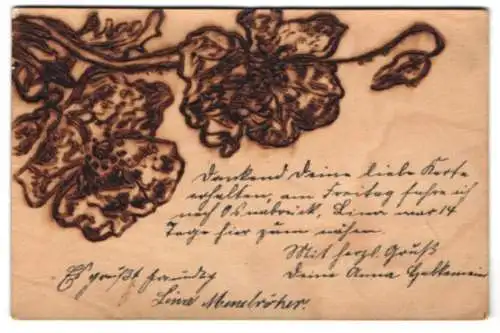 Dankend Deine liebe Karte
erhalten, am Freitag fahre ich
nach Osnabrück, Lina war 14
Tage hier zum nähen.
Mit herzl. Gruß
Deine Anna
Es grüßt freundlg
Lina